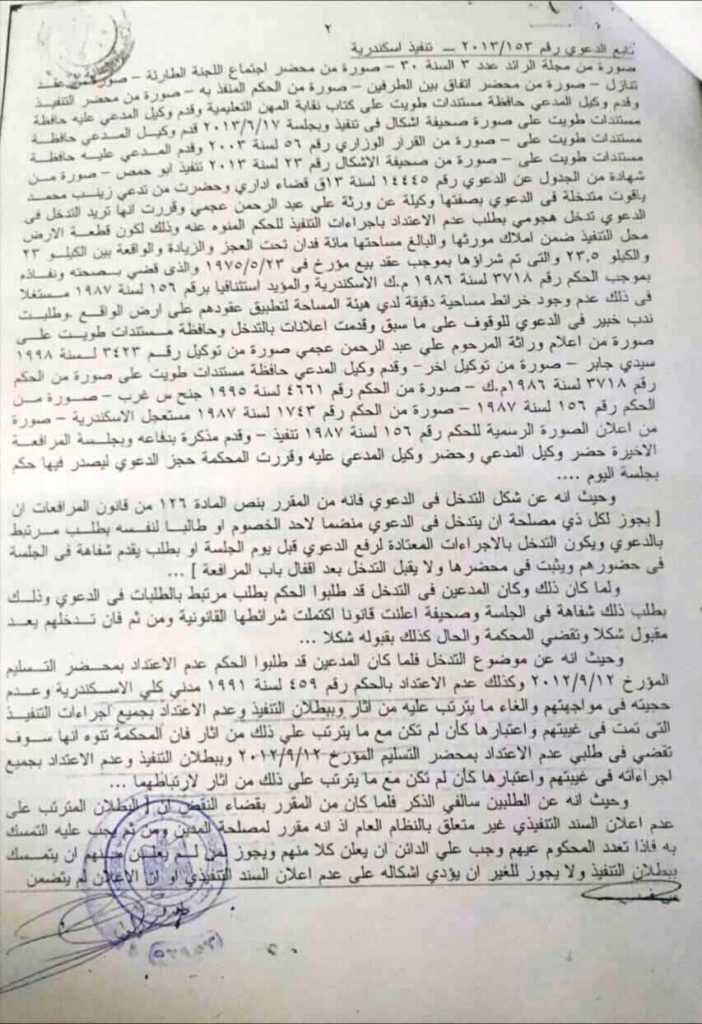 ٢
تابع الدعوي رقم ٢٠١٣/١٥٣ – تنفيذ اسكندرية
صورة من مجلة الرائد عدد ٣ السنة ٣٠ – صورة من محضر اجتماع اللجنة الطارئة – صورة من عقد
تنازل – صورة من محضر اتفاق بين الطرفين – صورة من الحكم المنفذ به – صورة من محضر التنفيذ
وقدم وكيل المدعي حافظة مستندات طويت على كتاب نقابة المهن التعليمية وقدم وكيل المدعي عليه حافظة
مستندات طويت على صورة صحيفة اشكال فى تنفيذ وبجلسة ٢٠١٣/٦/١٧ قدم وكيل المدعي حافظة
مستندات طويت على – صورة من القرار الوزاري رقم ٥٦ لسنة ٢٠٠٣ وقدم المدعي عليه حافظة
مستندات طويت على – صورة من صحيفة الاشكال رقم ٢٣ لسنة ٢٠١٣ تنفيذ ابو حمص – صورة من
شهادة من الجدول عن الدعوي رقم ١٤٤٤٥ لسنة ١٣ق قضاء اداري وحضرت من تدعي زينب محمد
ياقوت متدخلة فى الدعوي بصفتها وكيلة عن ورثة علي عبد الرحمن عجمي وقررت انها تريد التدخل فى
الدعوي تدخل هجومي بطلب عدم الاعتداد باجراءات التنفيذ للحكم المنوه عنه وذلك لكون قطعة الارض
محل التنفيذ ضمن املاك مورثها والبالغ مساحتها مائة فدان تحت العجز والزيادة والواقعة بين الكيلو ٢٣
والكيلو ٢٣,٥ والتى تم شراؤها بموجب عقد بيع مؤرخ فى ١٩٧٥/٥/٢٣ والذى قضي بصحته ونفاذه
بموجب الحكم رقم ٣٧١٨ لسنة ١٩٨٦ م.ك الاسكندرية والمؤيد استئنافيا برقم ١٥٦ لسنة ١٩٨٧ مستغلا
فى ذلك عدم وجود خرائط مساحية دقيقة لدي هيئة المساحة لتطبيق عقودهم على ارض الواقع .وطلبت
ندب خبير فى الدعوي للوقوف على ما سبق وقدمت اعلانات بالتدخل وحافظة مستندات طويت على
صورة من اعلام وراثة المرحوم علي عبد الرحمن عجمي صورة من توكيل رقم ٣٤٢٣ لسنة ١٩٩٨
سيدي جابر – صورة من توكيل اخر- وقدم وكيل المدعي حافظة مستندات طويت على صورة من الحكم
رقم ٣٧١٨ لسنة ١٩٨٦م.ك – صورة من الحكم رقم ٤٦٦١ لسنة ١٩٩٥ جنح س غرب – صورة من
الحكم رقم ١٥٦ لسنة ١٩٨٧ – صورة من الحكم رقم ١٧٤٣ لسنة ١٩٨٧ مستعجل الاسكندرية – صورة
من اعلان الصورة الرسمية للحكم رقم ١٥٦ لسنة ١٩٨٧ تنفيذ – وقدم مذكرة بدفاعه وبجلسة المرافعة
الاخيرة حضر وكيل المدعي وحضر وكيل المدعي عليه وقررت المحكمة حجز الدعوي ليصدر فيها حكم
بجلسة اليوم ....
وحيث انه عن شكل التدخل فى الدعوي فانه من المقرر بنص المادة ١٢٦ من قانون المرافعات ان
[ يجوز لكل ذي مصلحة ان يتدخل فى الدعوي منضما لاحد الخصوم او طالبا لنفسه بطلب مرتبط
بالدعوي ويكون التدخل بالاجراءات المعتادة لرفع الدعوي قبل يوم الجلسة او بطلب يقدم شفاهة فى الجلسة
فى حضورهم ويثبت فى محضرها ولا يقبل التدخل بعد اقفال باب المرافعة ] ...
ولما كان ذلك وكان المدعين فى التدخل قد طلبوا الحكم بطلب مرتبط بالطلبات فى الدعوي وذلك
بطلب ذلك شفاهة فى الجلسة وصحيفة اعلنت قانونا اكتملت شرائطها القانونية ومن ثم فان تدخلهم يعد
مقبول شكلا وتقضي المحكمة والحال كذلك بقبوله شكلا ...
وحيث انه عن موضوع التدخل فلما كان المدعين قد طلبوا الحكم عدم الاعتداد بمحضر التسليم
المؤرخ ٢٠١٢/٩/١٢ وكذلك عدم الاعتداد بالحكم رقم ٤٥٩ لسنة ١٩٩١ مدني كلي الاسكندرية وعدم
حجيته فى مواجهتهم والغاء ما يترتب عليه من اثار وببطلان التنفيذ وعدم الاعتداد بجميع اجراءات التنفيذ
التى تمت فى غيبتهم واعتبارها كأن لم تكن مع ما يترتب علي ذلك من اثار فان المحكمة تنوه انها سوف
تقضي فى طلبي عدم الاعتداد بمحضر التسليم المؤرخ ٢٠١٢/٩/١٢ وببطلان التنفيذ وعدم الاعتداد بجميع
اجراءاته فى غيبتهم واعتبارها كأن لم تكن مع ما يترتب على ذلك من اثار لارتباطهما ...
وحيث انه عن الطلبين سالفي الذكر فلما كان من المقرر بقضاء النقض ان [ البطلان المترتب على
عدم اعلان السند التنفيذي غير متعلق بالنظام العام اذ انه مقرر لمصلحة المدين ومن ثم يجب عليه التمسك
به فاذا تعدد المحكوم عيهم وجب علي الدائن ان يعلن كلا منهم ويجوز لمن لم يعلن منهم ان يتمسك
ببطلان التنفيذ ولا يجوز للغير ان يؤدي اشكاله على عدم اعلان السند التنفيذي او ان الاعلان لم يتضمن